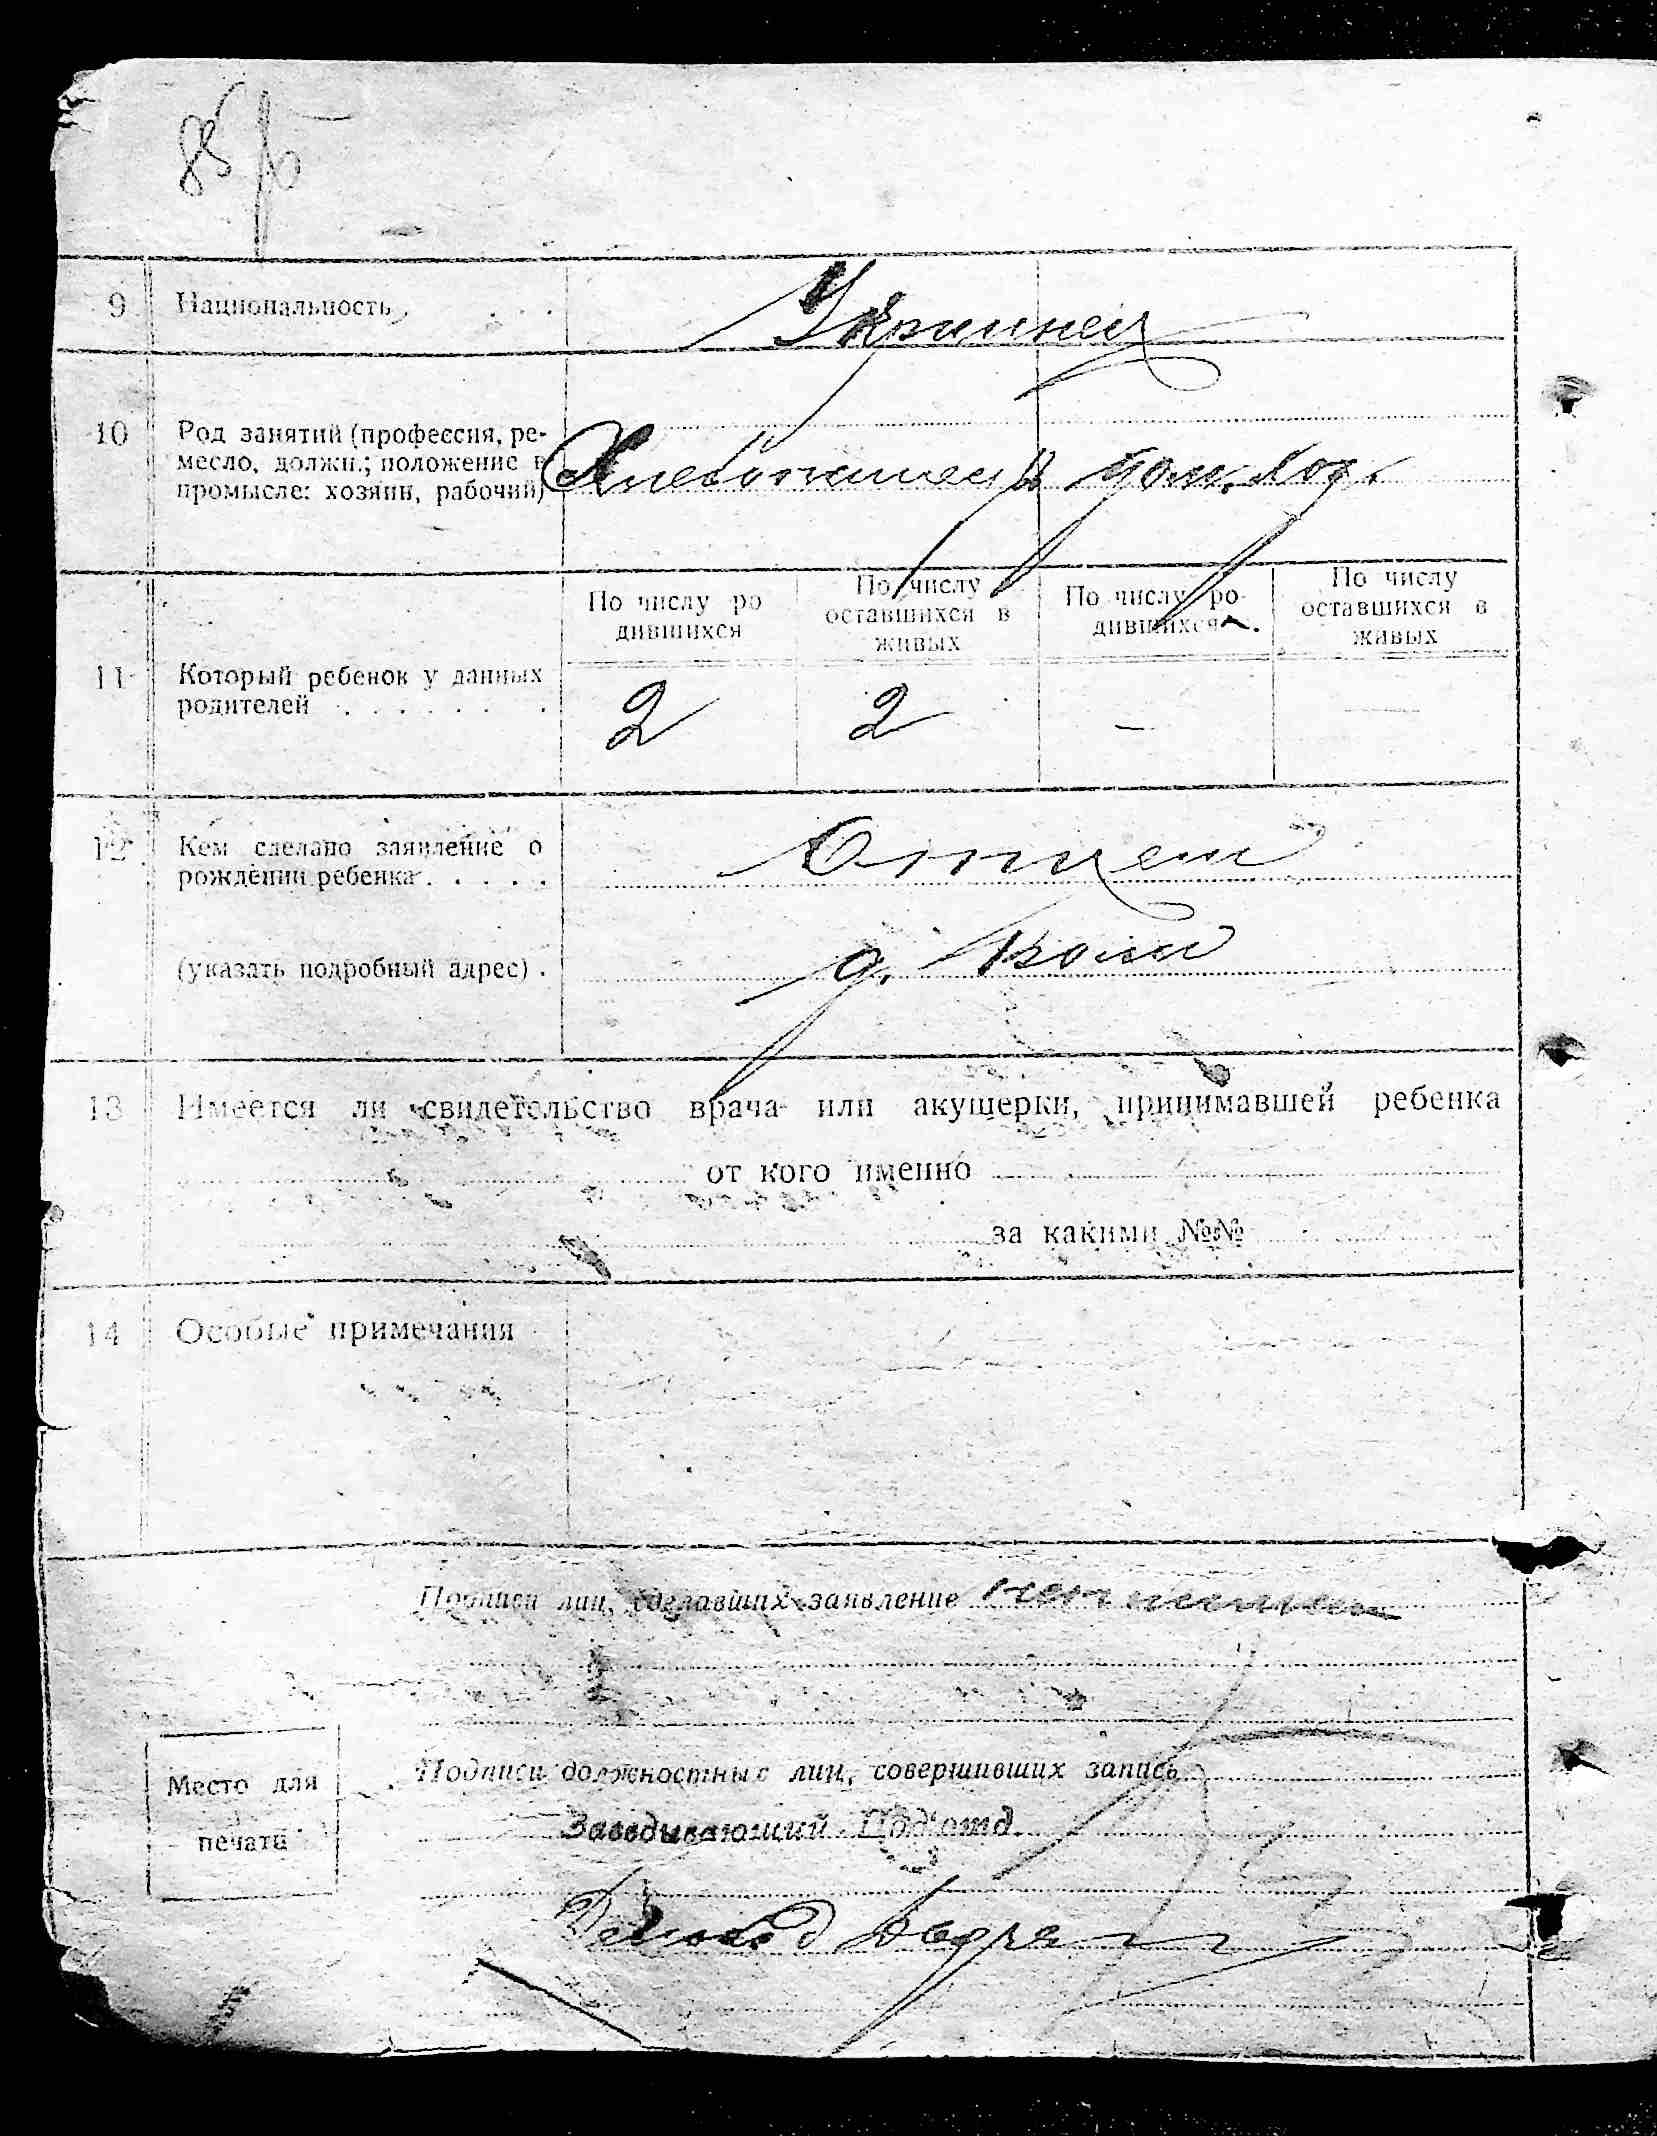 85
9 Национальность . . .
Украинец
10 Род занятий (профессия, ре-
месло, должн.; положение в
промысле: хозяин, рабочий)
Хлебопашец дом. хоз.
По числу ро
дившихся
По числу
оставшихся в
живых
По числу ро-
дившихся
По числу
оставшихся в
живых
11 Который ребенок у данных
родителей . . . . . . .
2 2 — —
12 Кем сделано заявление о
рождении ребенка . . . . .
Отцем
(указать подробный адрес) .
д.
13 Имеется ли свидетельство врача или акушерки, принимавшей ребенка
от кого именно
за какими №№
14 Особые примечания
Подписи лиц, сделавших заявление
Подписи должностных лиц, совершивших запись
Место для
печати
Заведывающий Под'отд.